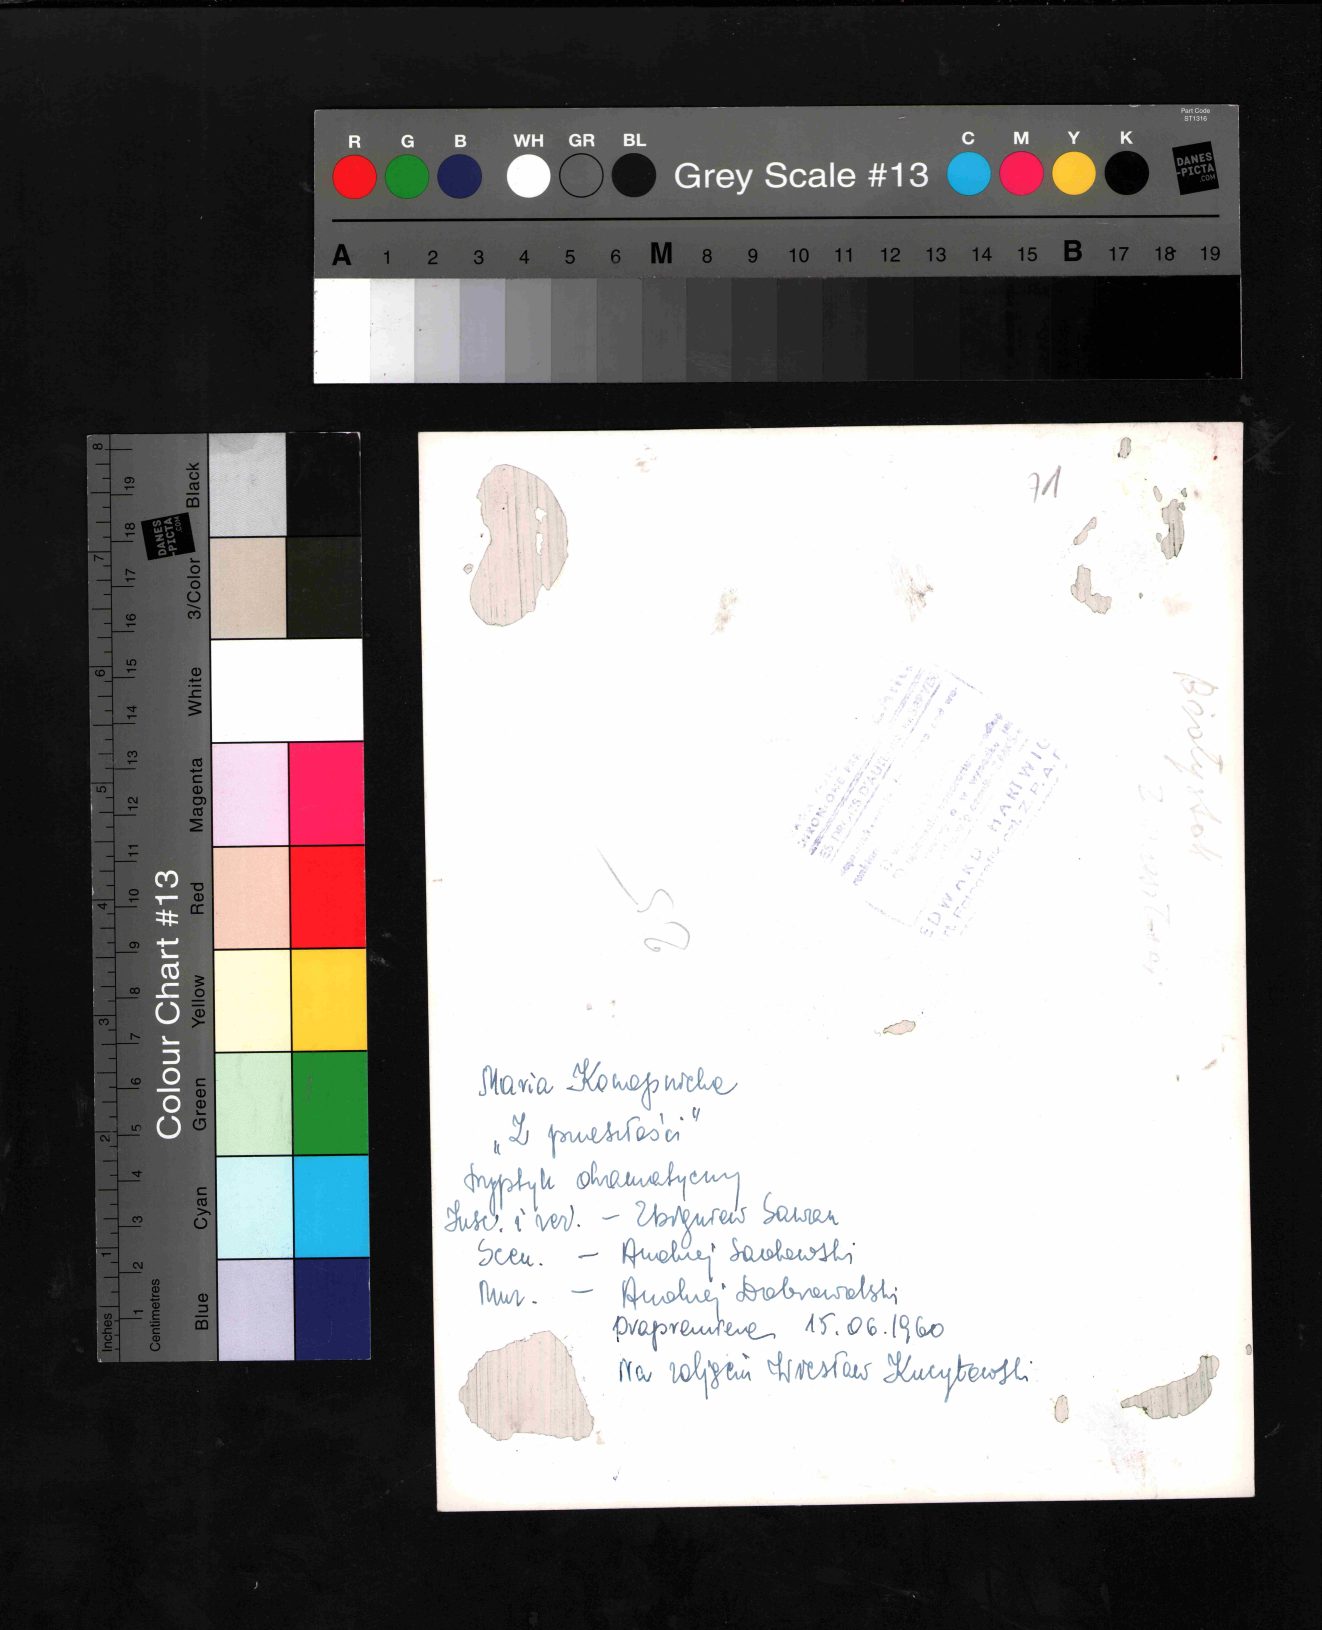 Part Code
ST1316
R G B WH GR BL Grey Scale #13 C M Y K
DANES
-PICTA
.COM
A 1 2 3 4 5 6 M 8 9 10 11 12 13 14 15 B 17 18 19
Colour Chart #13
DANES
-PICTA
.COM
Black
3/Color
White
Magenta
Red
Yellow
Green
Cyan
Blue
8 7 6 5 4 3 2 1 Inches
19 18 17 16 15 14 13 12 11 10 9 8 7 6 5 4 3 2 1 Centimetres
71
Białystok
EDWARD HARTWIG
Z.P.A.F
25
Maria Konopnicka
„Z przeszłości"
tryptyk dramatyczny
Insc. i reż. – Zbigniew Sawan
Scen. – Andrzej Sadowski
Muz. – Andrzej Dobrowolski
prapremiera 15.06.1960
Na zdjęciu Wiesław